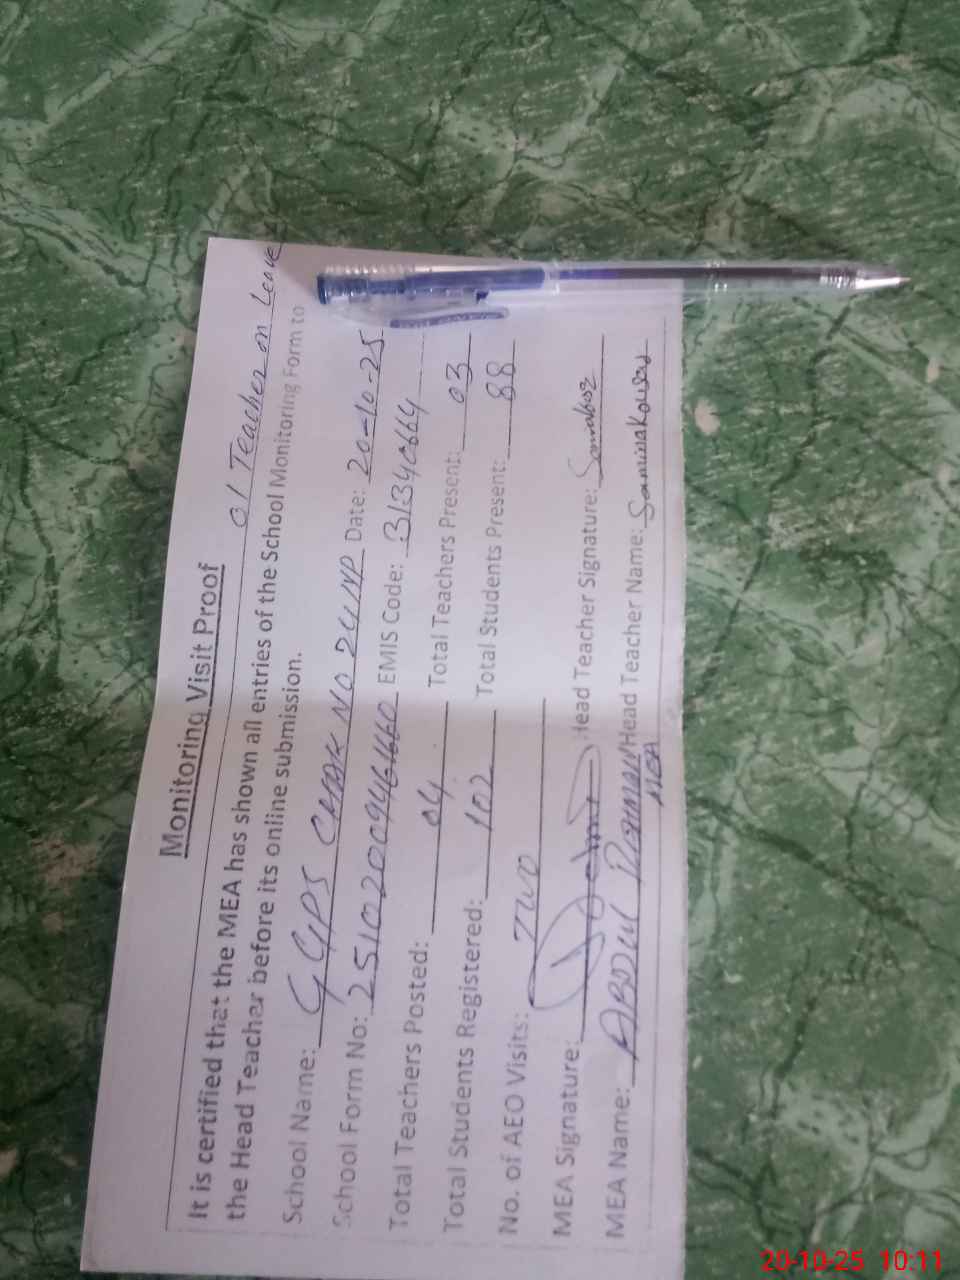 Monitoring Visit Proof
01 Teacher on Leave
It is certified that the MEA has shown all entries of the School Monitoring Form to
the Head Teacher before its online submission.
School Name: GGPS CHAK NO 24 NP Date: 20-10-25
School Form No: EMIS Code: 31340664
Total Teachers Posted: 04 Total Teachers Present: 03
Total Students Registered: 102 Total Students Present: 88
No. of AEO Visits: TWO
MEA Signature: Head Teacher Signature:
MEA Name: ABDUL REHMAN Head Teacher Name: Samina Kousar
MEA
20-10-25 10:11